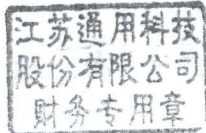 江苏通用科技
股份有限公司
财务专用章